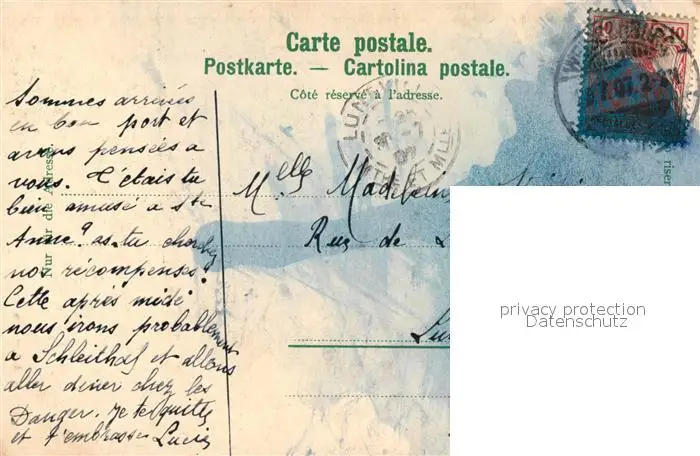 Carte postale.
Postkarte. — Cartolina postale.
Côté réservé à l'adresse.
Nur für die Adresse.
Sommes arrivées
en bon port et
avons pensées a
vous. T'étais tu
bien amusé a Ste
Anne? as-tu cherché
nos récompenses?
Cette après midi
nous irons probablement
a Schleithal et allons
aller diner chez les
Danger. Je te quitte
et t'embrasse Lucie
Melle Madelein
Rue de
Lu
10 10
LUNE
MEURTHE ET MLLE
privacy protection
Datenschutz